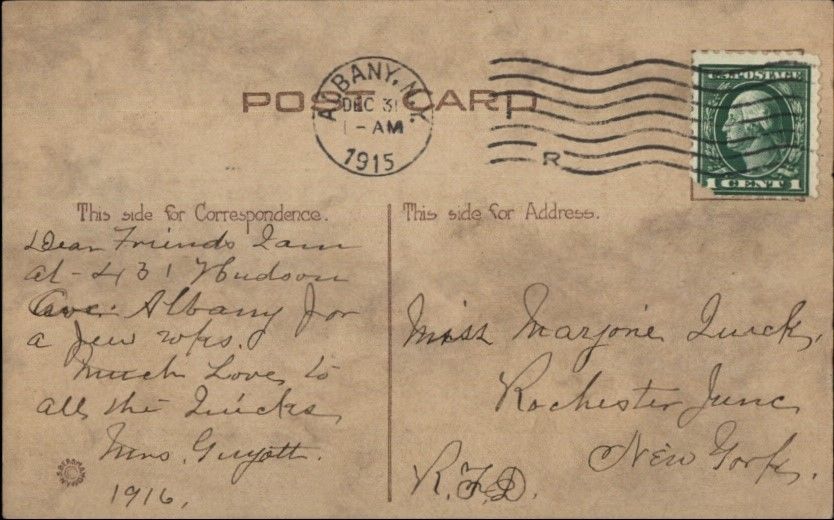 POST CARD
ALBANY, N.Y.
DEC 31
1-AM
1915
R
U.S. POSTAGE
1 CENT 1
This side for Correspondence.
This side for Address.
Dear Friends I am
at - 431 Hudson
Ave. Albany for
a few wks.
Much Love to
all the Quicks
Mrs. Guyott.
1916.
Miss Marjorie Quick,
Rochester Junc
New York.
R.F.D.